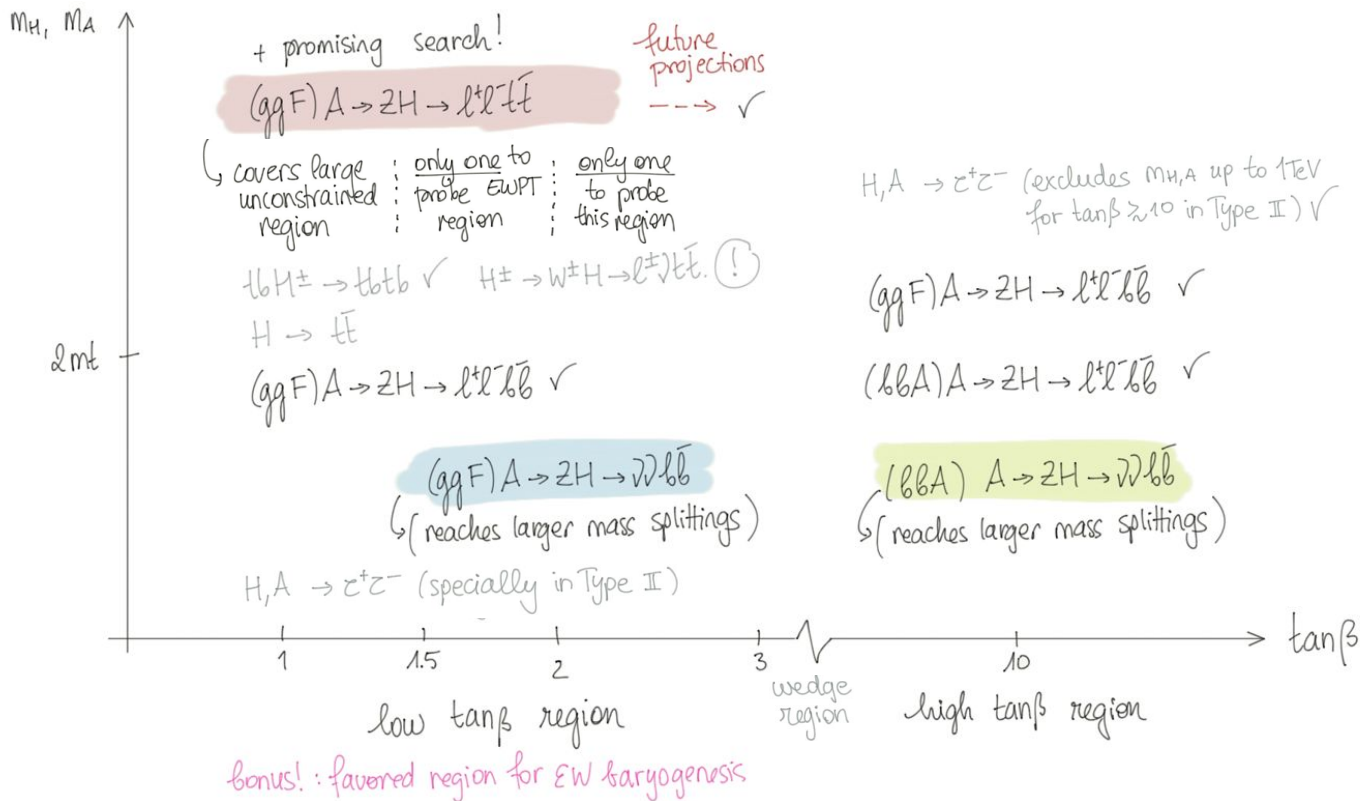 mH, mA
+ promising search!
(ggF) A → ZH → l⁺l⁻tt̄
future
projections
---→ ✓
↳ covers large
unconstrained
region
only one to
probe EWPT
region
only one
to probe
this region
H,A → τ⁺τ⁻ (excludes mH,A up to 1TeV
for tanβ ≳ 10 in Type II) ✓
tbH± → tbtb ✓ H± → W±H → l±νtt̄. (!)
H → tt̄
(ggF) A → ZH → l⁺l⁻bb̄ ✓
2mt
(ggF) A → ZH → l⁺l⁻bb̄ ✓
(bbA) A → ZH → l⁺l⁻bb̄ ✓
(ggF) A → ZH → ννbb̄
↳ (reaches larger mass splittings)
(bbA) A → ZH → ννbb̄
↳ (reaches larger mass splittings)
H,A → τ⁺τ⁻ (specially in Type II)
1 1.5 2 3 10 tanβ
low tanβ region
wedge
region
high tanβ region
bonus! : favored region for EW baryogenesis